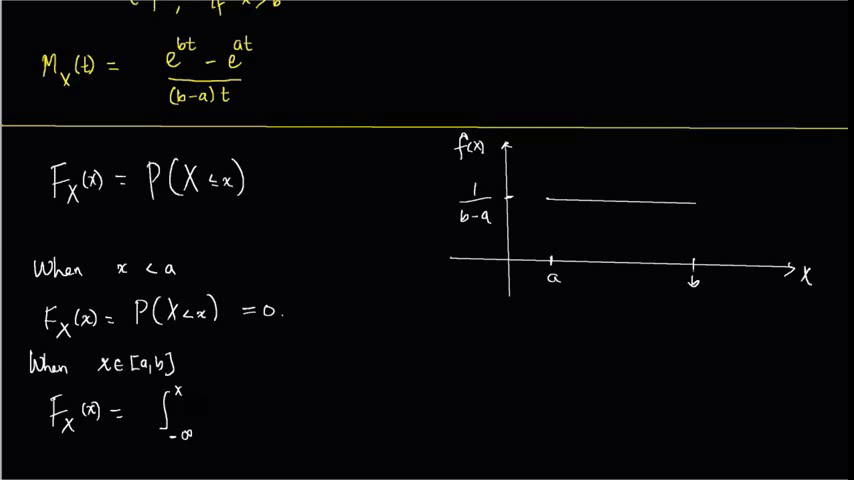 1, if x > b
M_X(t) = \frac{e^{bt} - e^{at}}{(b-a)t}
F_X(x) = P(X ≤ x)
When x < a
F_X(x) = P(X < x) = 0.
When x ∈ [a,b]
F_X(x) = \int_{-∞}^{x}
f(x)
\frac{1}{b-a}
a
b
X